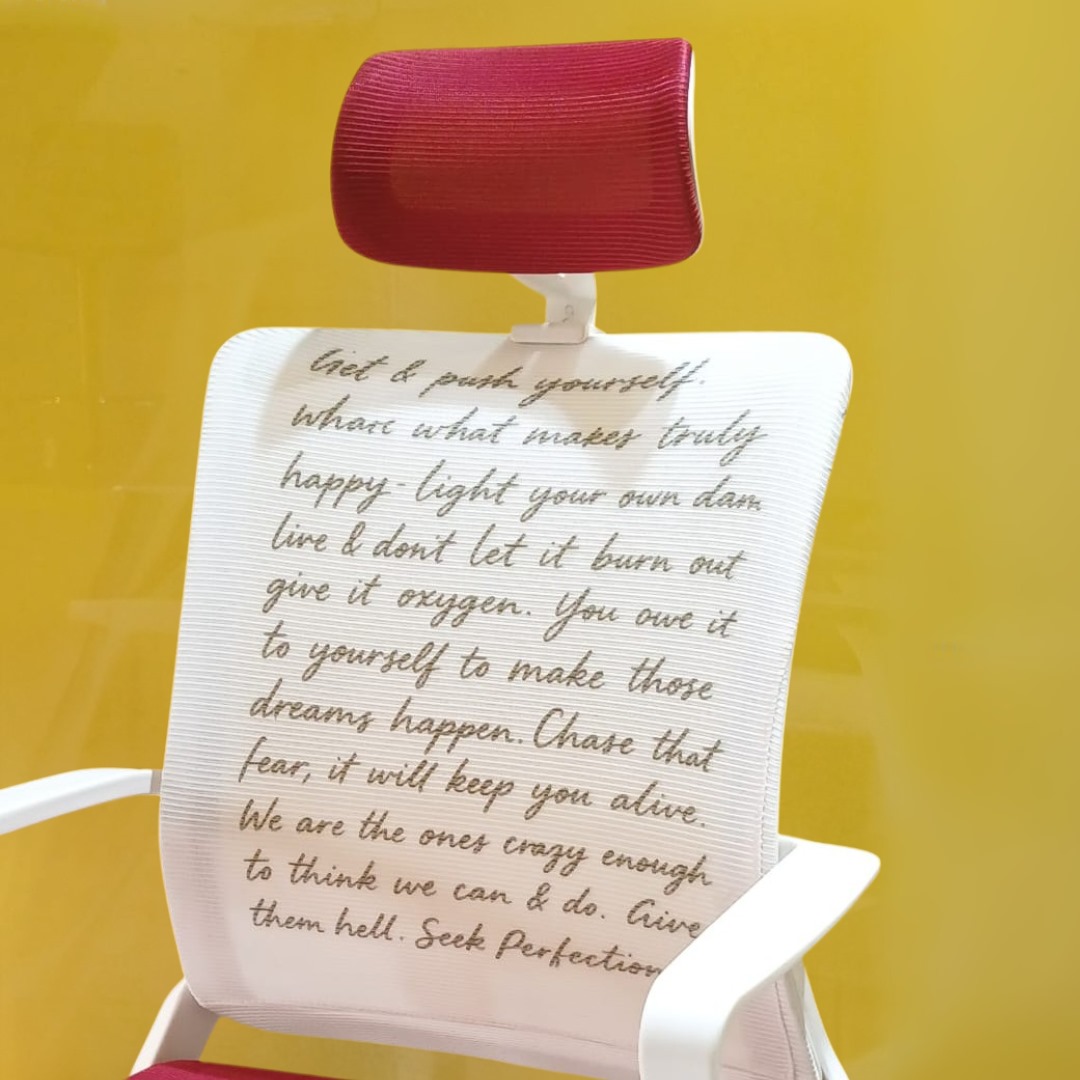 Get & push yourself.
what what makes truly
happy - light your own dam
live & don't let it burn out
give it oxygen. You owe it
to yourself to make those
dreams happen. Chase that
fear, it will keep you alive.
We are the ones crazy enough
to think we can & do. Give
them hell. Seek Perfection